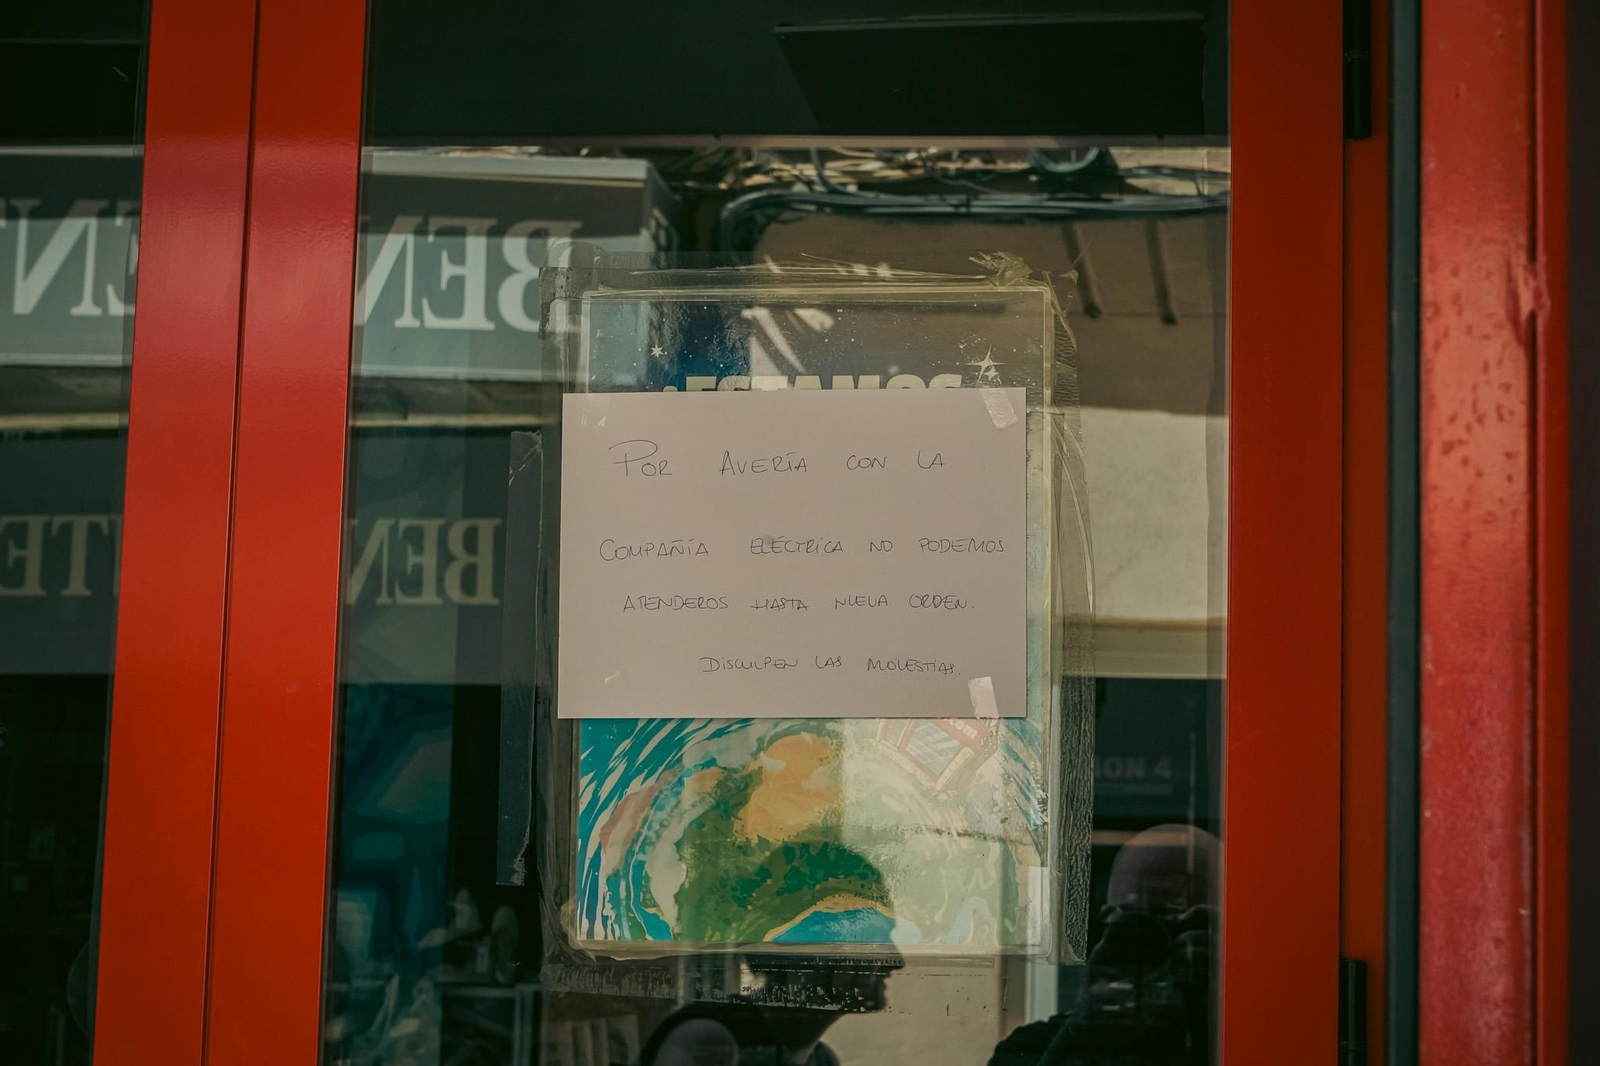 BENT
BEN
BENTE
BEN
POR AVERÍA CON LA
COMPAÑÍA ELÉCTRICA NO PODEMOS
ATENDEROS HASTA NUEVA ORDEN.
DISCULPEN LAS MOLESTIAS.
.com
ION 4